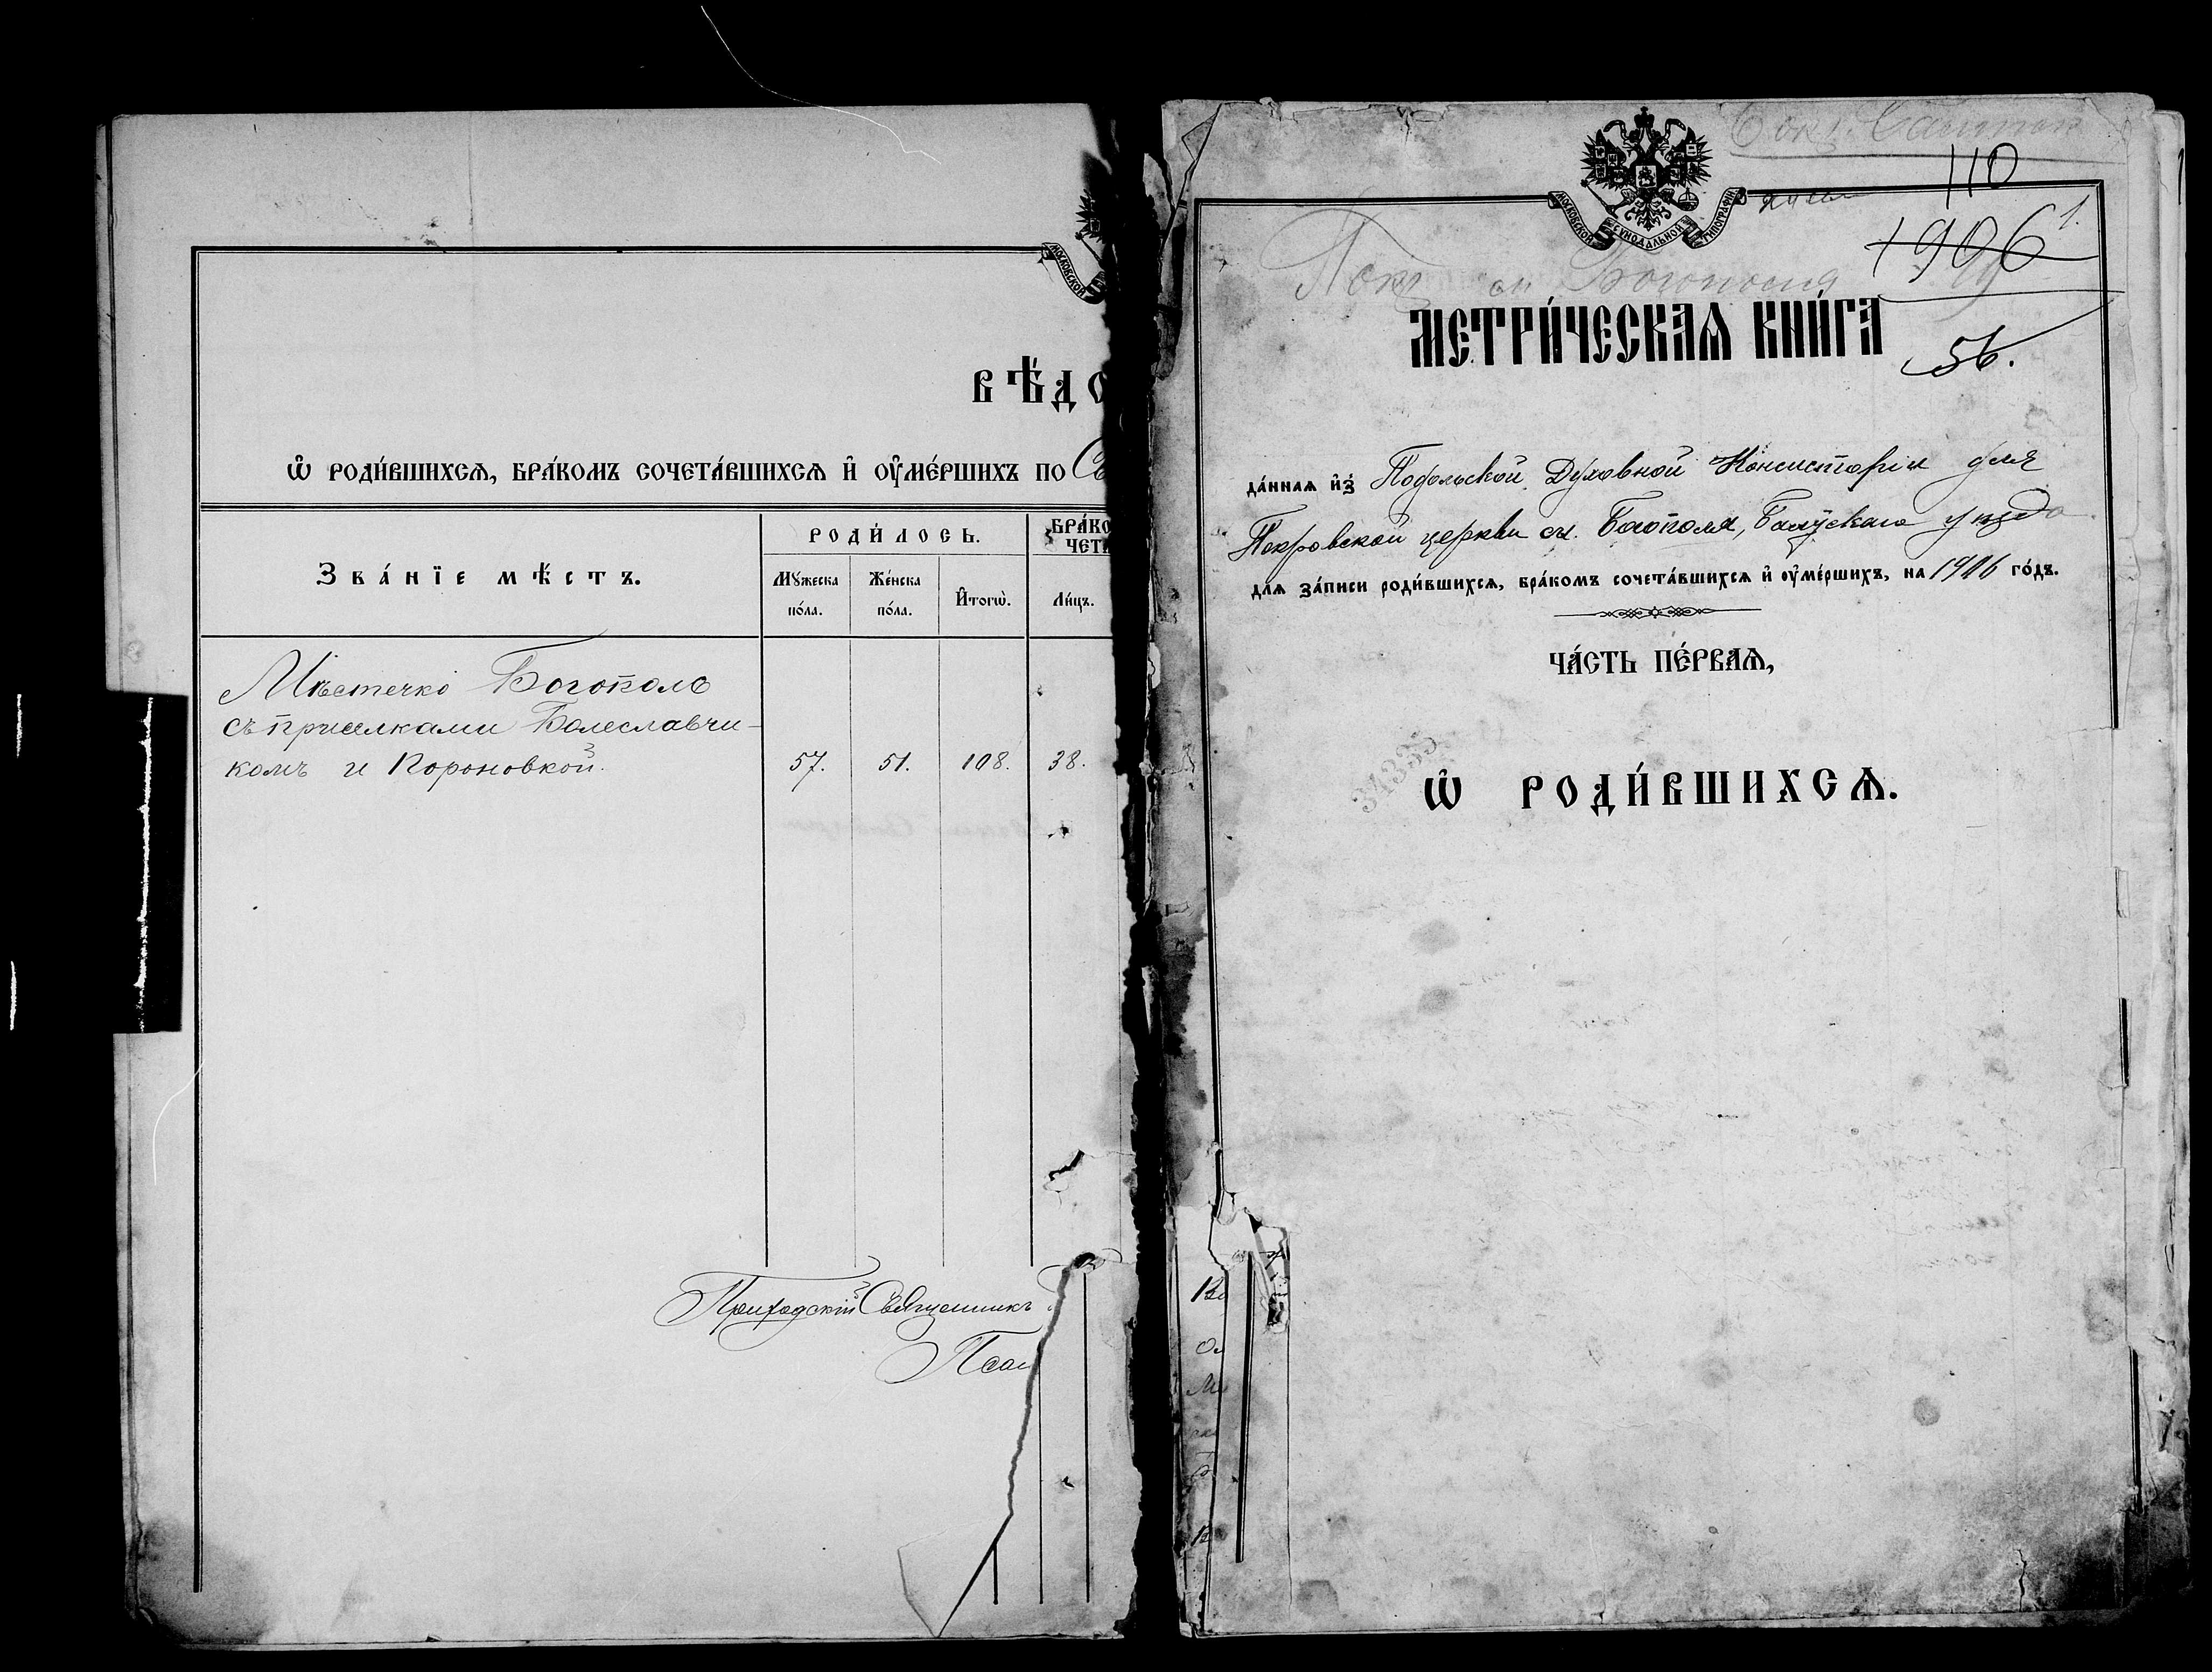 МОСКОВСКОЙ
ВѢДО
Ѡ҆ РОДИ́ВШИХСѦ, БРА́КОМЪ СОЧЕТА́ВШИХСѦ И҆ ОУ҆МЕ́РШИХЪ ПО Св
Зва́нїе мѣ́стъ.
РОДИ́ЛОСЬ.
БРА́КО
ЧЕТА
Мꙋ́жеска
по́ла.
Же́нска
по́ла.
И҆тогѡ̀.
Ли́цъ.
Мѣстечко Богополь
съ приселками Болеславчи-
комъ и Короновкой.
57.
51.
108.
38.
Приходскій Священникъ
Псал
110
МОСКОВСКОЙ СѴНОДАЛЬНОЙ ТИПОГРАФІИ
1906
1.
Богополя
МЕТРИ́ЧЕСКАѦ КНИ́ГА
56.
да́ннаѧ и҆з̾ Подольской Духовной Консисторіи для
Покровской церкви м. Богополя, Балтскаго уѣзда
длѧ за́писи роди́вшихсѧ, бра́комъ сочета́вшихсѧ и҆ оу҆ме́ршихъ, на 1906 го́дъ.
ЧА́СТЬ ПЕ́РВАѦ,
34335
Ѡ҆ РОДИ́ВШИХСѦ.